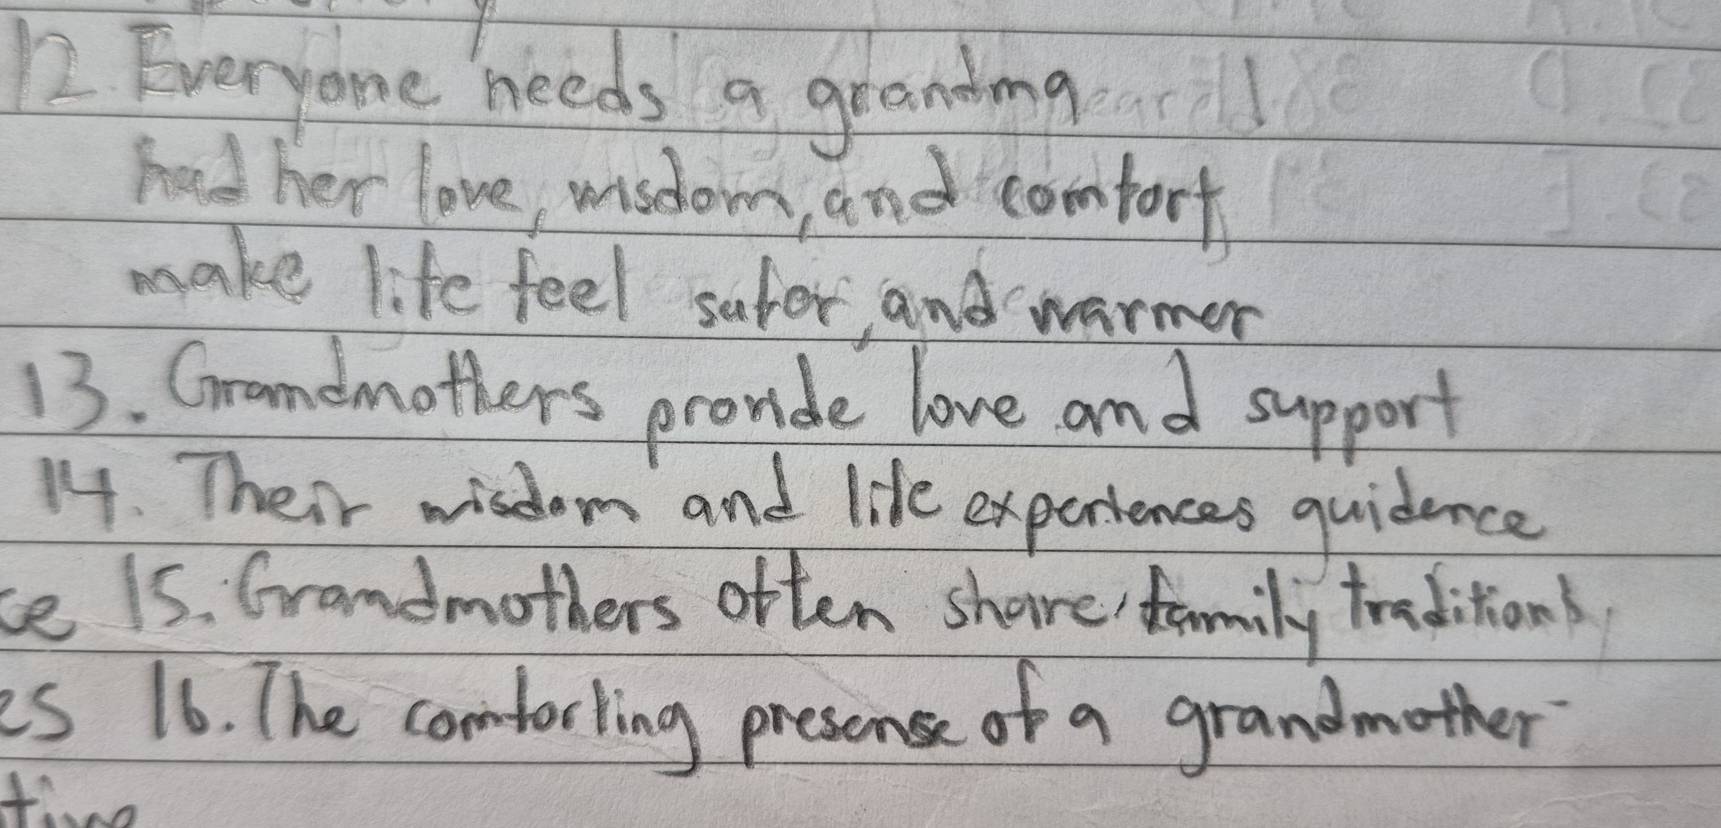 12. Everyone needs a grandma
had her love, wisdom, and comfort,
make life feel safer, and warmer
13. Grandmothers provide love and support
14. Their wisdom and life experiences guidence
ce 15. Grandmothers often share, family traditions,
es 16. The comforting presense of a grandmother
time